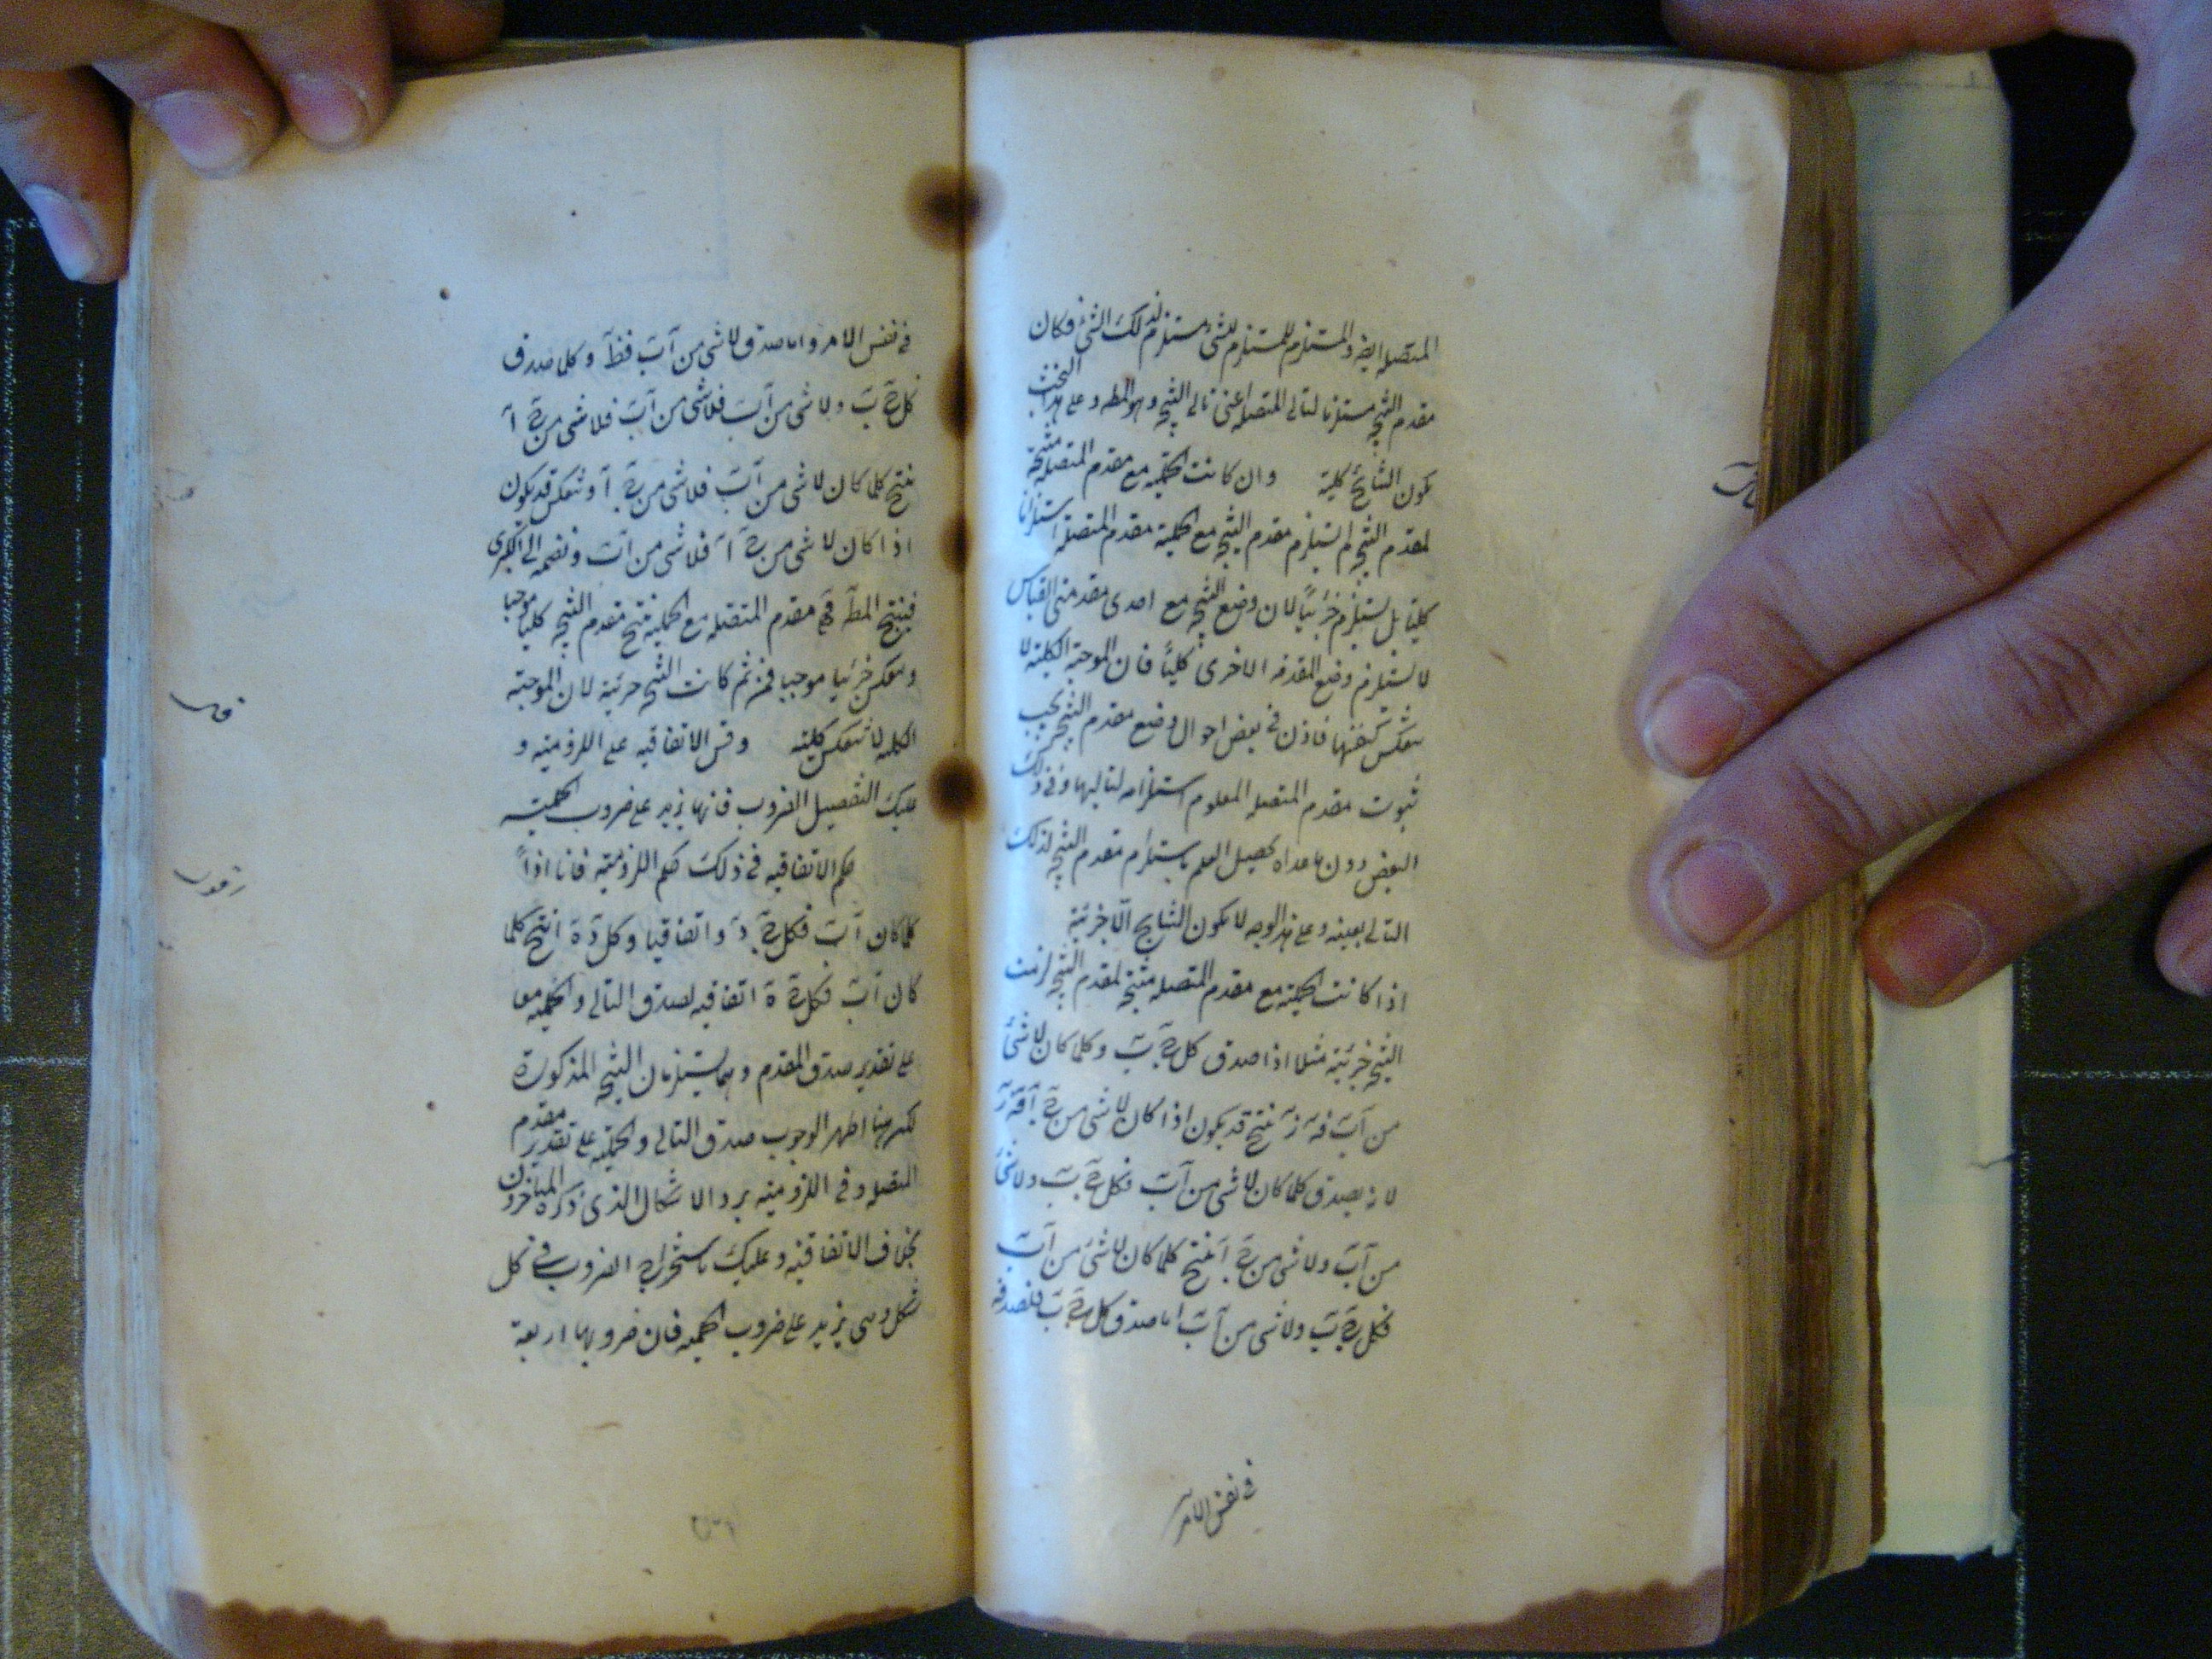 المتصله ايضه والمستلزم للمستلزم للشئ مستلزم لذلك الشئ فكان
مقدم النتيجه مستلزما لتالى المتصله اعنى تالى النتيجه وهو المطه وعلى هذا البحث
تكون النتائج كلية وان كانت الحملية مع مقدم المتصله منتجة
لمقدم النتيجه لم يستلزم مقدم النتيجه مع الحملية مقدم المتصله استلزاما
كليا بل يستلزم جزئيا لان وضع النتيجه مع احدى مقدمتى القياس
لا يستلزم وضع المقدمه الاخرى كليا فان الموجبة الكلية لا
تنعكس كنفسها فاذن فى بعض احوال وضع مقدم النتيجه يجب
ثبوت مقدم المتصله المعلوم استلزامه لتاليها وفى ذلك
البعض دون ما عداه يحصل العلم باستلزام مقدم النتيجه لذلك
التالى بعينه وعلى هذا الوجه لا يكون النتايج الا جزئية
اذا كانت الحملية مع مقدم المتصله منتجة لمقدم النتيجه لزمت
النتيجه جزئية مثلا اذا صدق كل ج ب وكلما كان لا شئ
من آ ب فه ز ينتج قد يكون اذا كان لا شى من ج آ فه ز
لانه يصدق كلما كان لا شى من آ ب فكل ج ب ولا شئ
من آ ب ولا شى من ج آ ينتج كلما كان لا شئ من آ ب
فكل ج ب ولا شى من آ ب اما صدق كل ج ب فلصدقه
فى نفس الامر
فى نفس الامر واما صدق لا شى من آ ب فظ وكلما صدق
كل ج ب ولا شى من آ ب فلا شى من آ ب فلا شى من ج آ
ينتج كلما كان لا شى من آ ب فلا شى من ج آ وتنعكس قد يكون
اذا كان لا شى من ج آ فلا شى من آ ب ونضمه الى الكبرى
فينتج المط مقدم المتصله مع الحملية ينتج مقدم النتيجه كليا موجبا
وينعكس جزئيا موجبا فمن ثم كانت النتيجه جزئية لان الموجبة
الكلية لا تنعكس كلية وقس الاتفاقيه على اللزومية و
عليك التفصيل الضروب فانها يزيد على ضروب الحملية
حكم الاتفاقيه فى ذلك حكم اللزومية فانا اذا
كلما كان آ ب فكل ج د اتفاقيا وكل د ه انتج كلما
كان آ ب فكل ج ه اتفاقيه لصدق التالى والحملية معا
على تقدير صدق المقدم وهما يستلزمان النتيجه المذكورة
لكن ههنا اظهر لوجوب صدق التالى والحملية على تقدير مقدم
المتصله وفى اللزومية يرد الاشكال الذى ذكره المتاخرون
بخلاف الاتفاقية وعليك باستخراج الضروب فى كل
شكل وهى يزيد على ضروب الحملية فان ضروبها اربعة